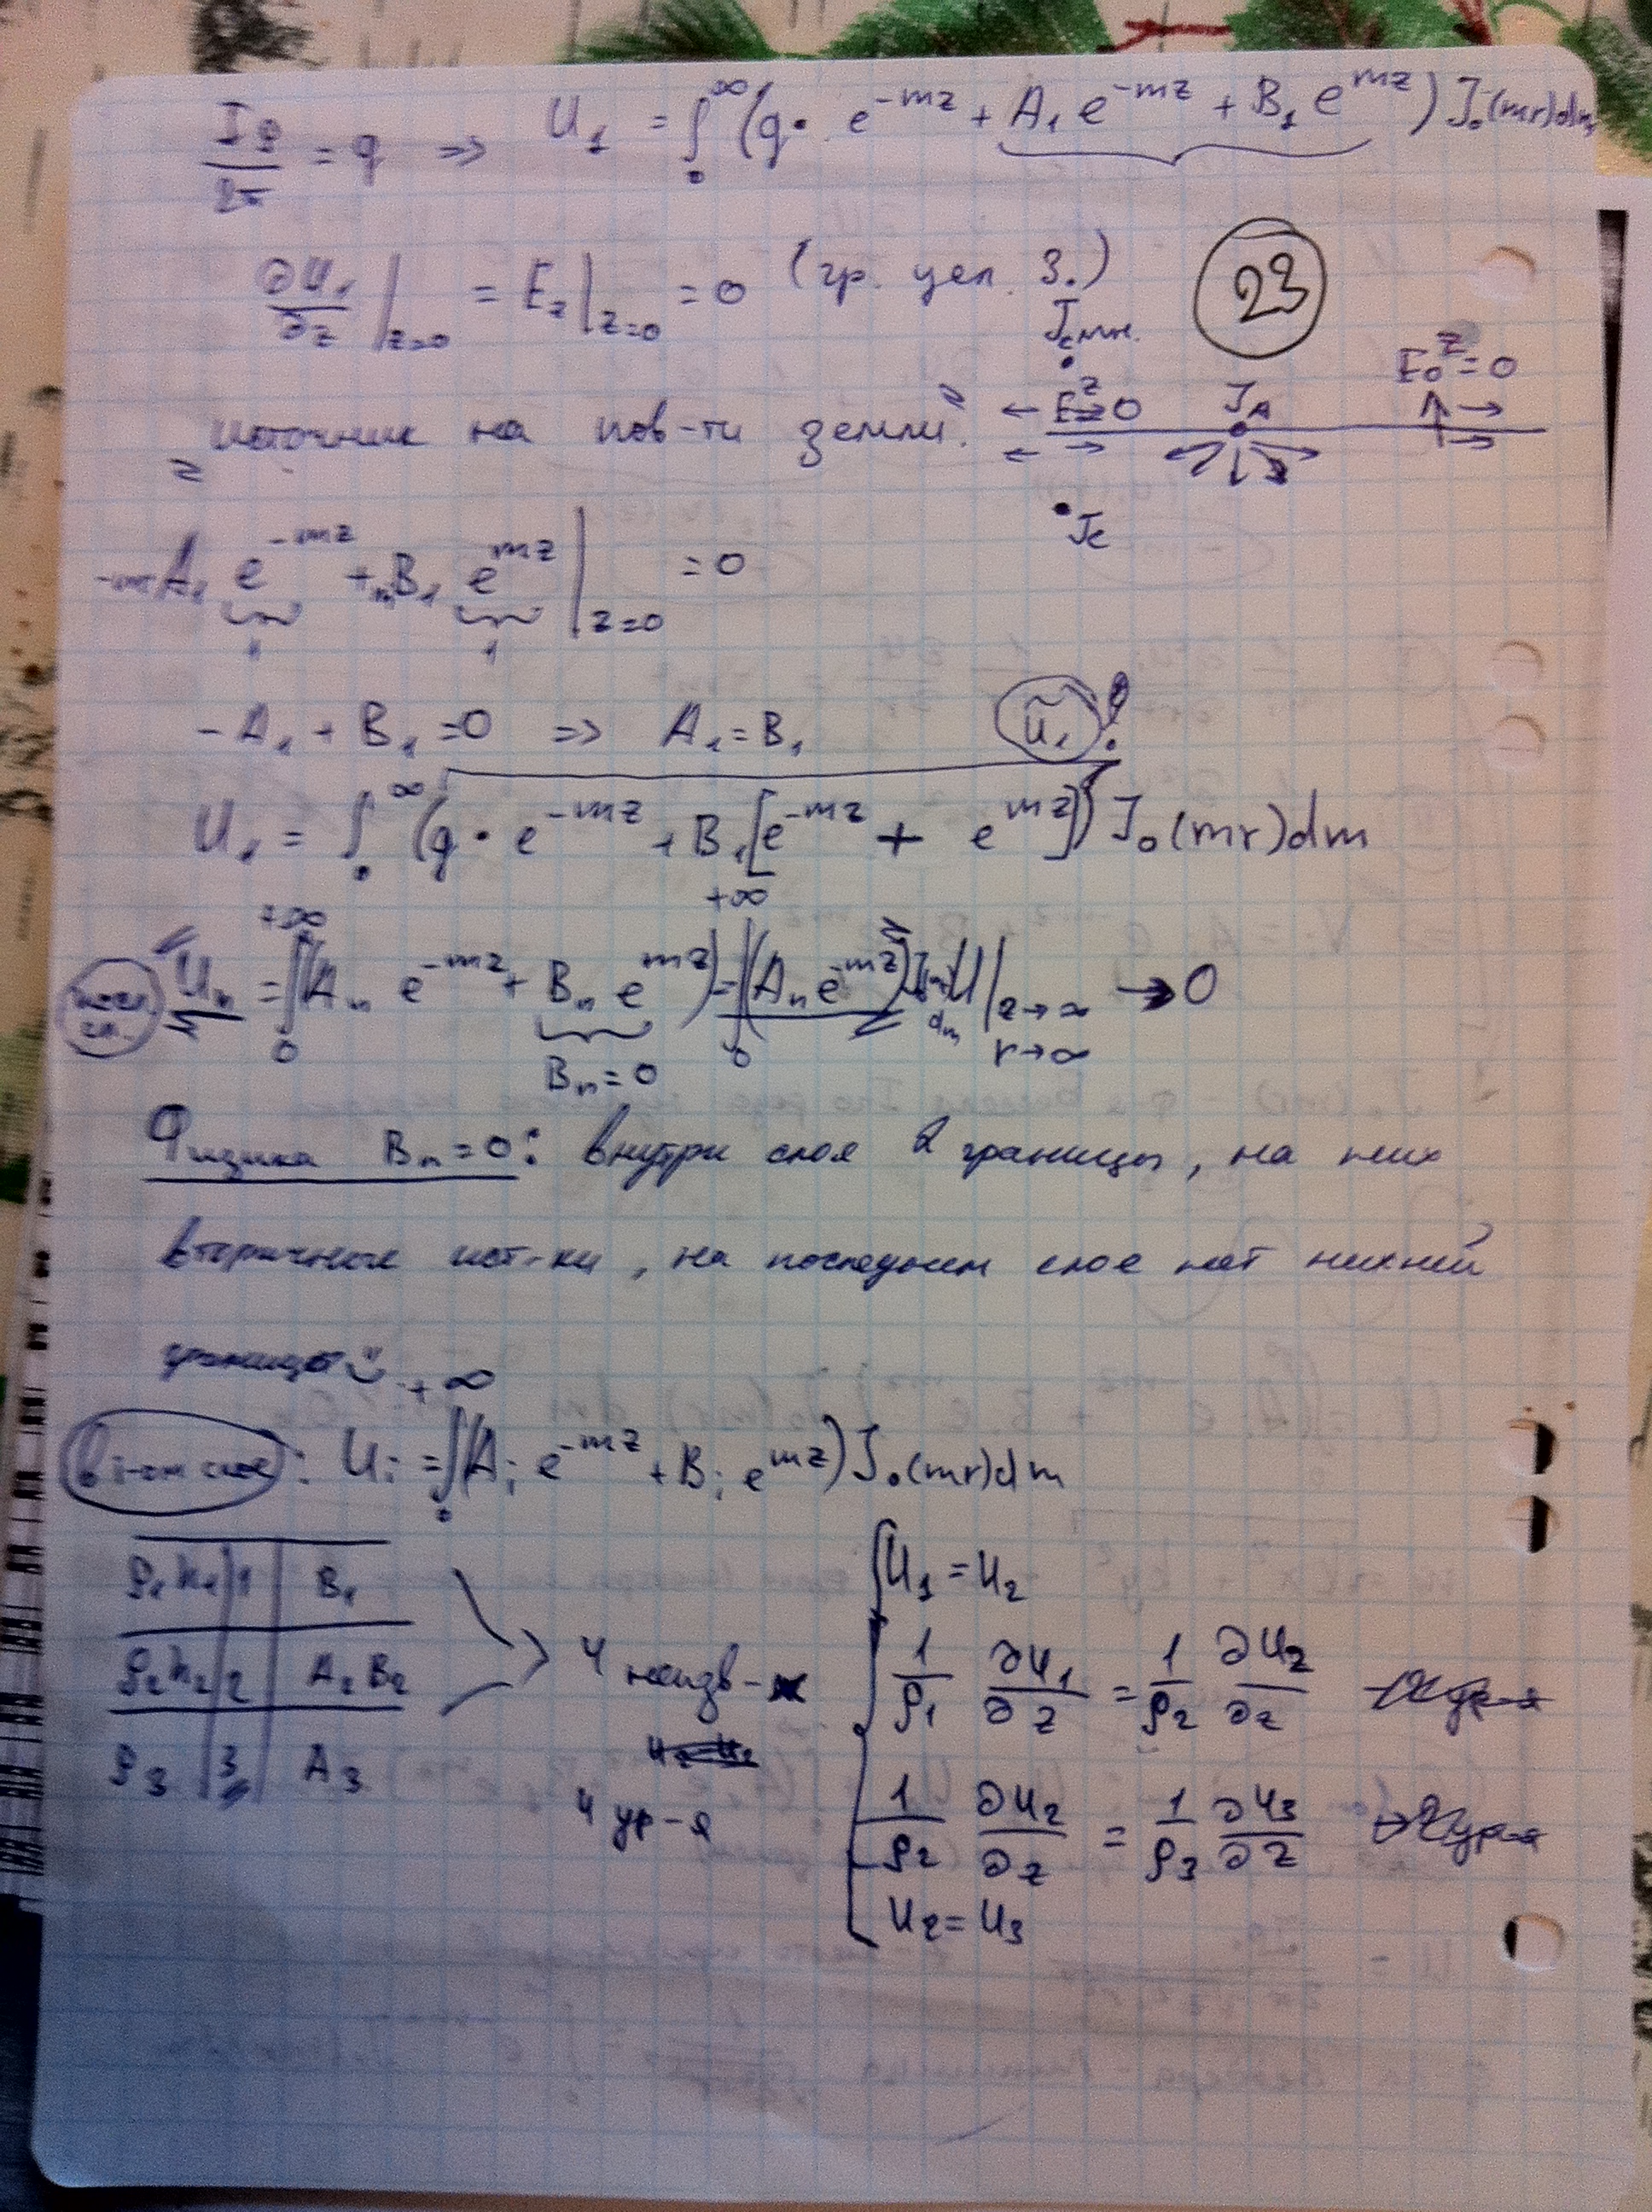 Iρ/2π = q => U₁ = ∫₀^∞ (q · e^{-mz} + A₁ e^{-mz} + B₁ e^{mz}) J₀(mr)dm
∂U₁/∂z |_{z=0} = E_z |_{z=0} = 0 (гр. усл. 3.)
23
J_c мн.
E^z = 0 J_A E₀^z = 0
"источник на пов-ти земли"
J_c
-mA₁ e^{-mz} + mB₁ e^{mz} |_{z=0} = 0
1 1
-A₁ + B₁ = 0 => A₁ = B₁
Ũ₁ !
U₁ = ∫₀^∞ (q · e^{-mz} + B₁ [e^{-mz} + e^{mz}]) J₀(mr)dm
посл. сл. Uₙ = ∫₀^{+∞} (Aₙ e^{-mz} + Bₙ e^{mz}) = ∫₀^{+∞} (Aₙ e^{-mz}) J₀ dm U |_{z→∞ r→∞} → 0
Bₙ = 0
Физика Bₙ = 0: внутри слоя 2 границы, на них
вторичные ист-ки, на последнем слое нет нижней
границы
в i-ом слое: U_i = ∫₀^{+∞} (A_i e^{-mz} + B_i e^{mz}) J₀(mr)dm
ρ₁ h₁ 1 B₁
ρ₂ h₂ 2 A₂ B₂
ρ₃ 3 A₃
4 неизв-х
4 ур-я
U₁ = U₂
1/ρ₁ ∂U₁/∂z = 1/ρ₂ ∂U₂/∂z
1/ρ₂ ∂U₂/∂z = 1/ρ₃ ∂U₃/∂z
U₂ = U₃